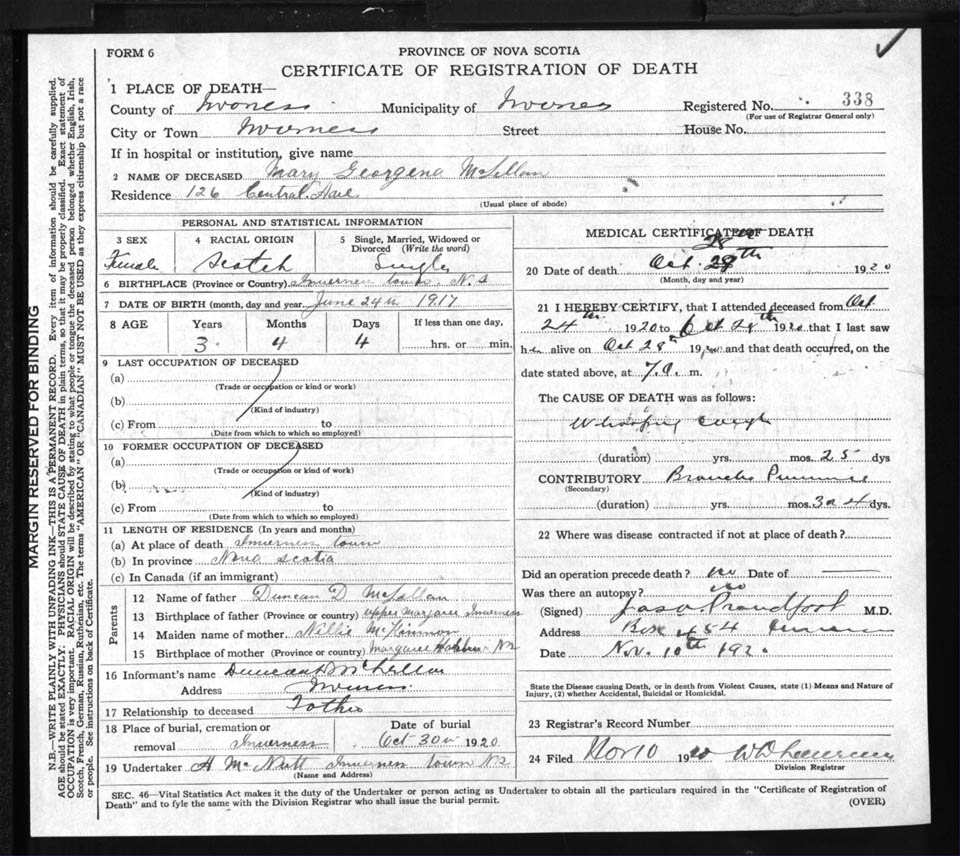 FORM 6
PROVINCE OF NOVA SCOTIA
CERTIFICATE OF REGISTRATION OF DEATH
1 PLACE OF DEATH—
County of Inverness Municipality of Inverness Registered No. 338
(For use of Registrar General only)
City or Town Inverness Street House No.
If in hospital or institution, give name
2 NAME OF DECEASED Mary Georgena McLellan
Residence 126 Central Ave
(Usual place of abode)
PERSONAL AND STATISTICAL INFORMATION
3 SEX 4 RACIAL ORIGIN 5 Single, Married, Widowed or Divorced (Write the word)
Female Scotch Single
6 BIRTHPLACE (Province or Country) Inverness town N.S
7 DATE OF BIRTH (month, day and year) June 24th 1917
8 AGE Years Months Days If less than one day,
3 4 4 hrs. or min.
9 LAST OCCUPATION OF DECEASED
(a)
(Trade or occupation or kind or work)
(b)
(Kind of industry)
(c) From to
(Date from which to which so employed)
10 FORMER OCCUPATION OF DECEASED
(a)
(Trade or occupation or kind of work)
(b)
(Kind of industry)
(c) From to
(Date from which to which so employed)
11 LENGTH OF RESIDENCE (In years and months)
(a) At place of death Inverness town
(b) In province Nova Scotia
(c) In Canada (if an immigrant)
Parents
12 Name of father Duncan D McLellan
13 Birthplace of father (Province or country) upper Margaree Inverness
14 Maiden name of mother Nillie McKinnon
15 Birthplace of mother (Province or country) Margaree NS
16 Informant's name Duncan McLellan
Address Inverness
17 Relationship to deceased Father
18 Place of burial, cremation or removal Inverness Date of burial Oct 30 1920
19 Undertaker A McNutt Inverness town NS
(Name and Address)
MEDICAL CERTIFICATE OF DEATH
28th
20 Date of death Oct. 28th 1920
(Month, day and year)
21 I HEREBY CERTIFY, that I attended deceased from Oct
24th 1920 to Oct 28th 1920 that I last saw
her alive on Oct 28th 1920 and that death occurred, on the
date stated above, at 7.a. m.
The CAUSE OF DEATH was as follows:
Whooping Cough
(duration) yrs. mos. 25 dys
CONTRIBUTORY Broncho
(Secondary)
(duration) yrs. mos. 3 a 4 dys.
22 Where was disease contracted if not at place of death?
Did an operation precede death? no Date of
Was there an autopsy? no
(Signed) Jas Proudfoot M.D.
Address Box 454 Inverness
Date Nov. 10th 1920
State the Disease causing Death, or in death from Violent Causes, state (1) Means and Nature of Injury, (2) whether Accidental, Suicidal or Homicidal.
23 Registrar's Record Number
24 Filed Nov 10 1920 W D
Division Registrar
SEC. 46—Vital Statistics Act makes it the duty of the Undertaker or person acting as Undertaker to obtain all the particulars required in the "Certificate of Registration of
Death" and to fyle the same with the Division Registrar who shall issue the burial permit. (OVER)
MARGIN RESERVED FOR BINDING
N.B.—WRITE PLAINLY WITH UNFADING INK—THIS IS A PERMANENT RECORD. Every item of information should be carefully supplied.
AGE should be stated EXACTLY. PHYSICIANS should STATE CAUSE OF DEATH in plain terms, so that it may be properly classified. Exact statement of
OCCUPATION is very important. RACIAL ORIGIN will be described by stating to what people or tongue the deceased person belonged, whether English, Irish,
Scotch, French, German, Russian, Ruthenian, etc. The terms "AMERICAN" OR "CANADIAN" MUST NOT BE USED as they express citizenship but not a race
or people. See instructions on back of Certificate.